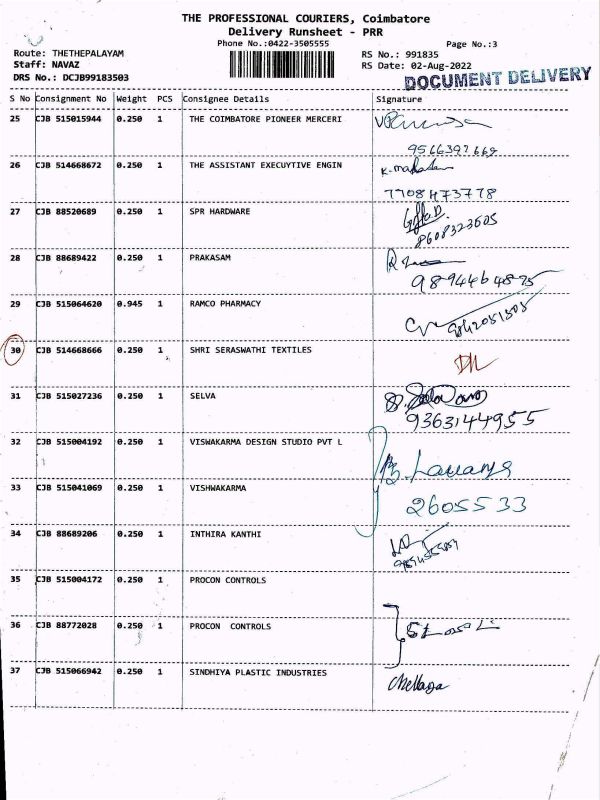 THE PROFESSIONAL COURIERS, Coimbatore
Delivery Runsheet - PRR
Phone No.:0422-3505555
Page No.:3
Route: THETHEPALAYAM
RS No.: 991835
Staff: NAVAZ
RS Date: 02-Aug-2022
DRS No.: DCJB99183503
DOCUMENT DELIVERY
S No Consignment No Weight PCS Consignee Details Signature
25 CJB 515015944 0.250 1 THE COIMBATORE PIONEER MERCERI
9566397669
26 CJB 514668672 0.250 1 THE ASSISTANT EXECUYTIVE ENGIN
7708473778
27 CJB 88520689 0.250 1 SPR HARDWARE
8608323605
28 CJB 88689422 0.250 1 PRAKASAM
9894464895
29 CJB 515064620 0.945 1 RAMCO PHARMACY
9842051505
30 CJB 514668666 0.250 1 SHRI SERASWATHI TEXTILES
31 CJB 515027236 0.250 1 SELVA
9363144955
32 CJB 515004192 0.250 1 VISWAKARMA DESIGN STUDIO PVT L
B. Lavanya
33 CJB 515041069 0.250 1 VISHWAKARMA
2605533
34 CJB 88689206 0.250 1 INTHIRA KANTHI
35 CJB 515004172 0.250 1 PROCON CONTROLS
36 CJB 88772028 0.250 1 PROCON CONTROLS
37 CJB 515066942 0.250 1 SINDHIYA PLASTIC INDUSTRIES